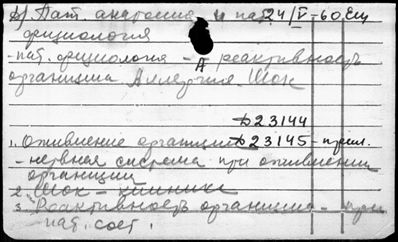 б) Пат. анатомия и пат. 24/V-60 Ем
физиология
- пат. физиология - А реактивность
организма Аллергия. Шок
Д23144
1. Оживление организма Д23145 - прил.
- нервная система при оживлении
организма
2. Шок - клиника
3. Реактивность организма - при
пат. сост.